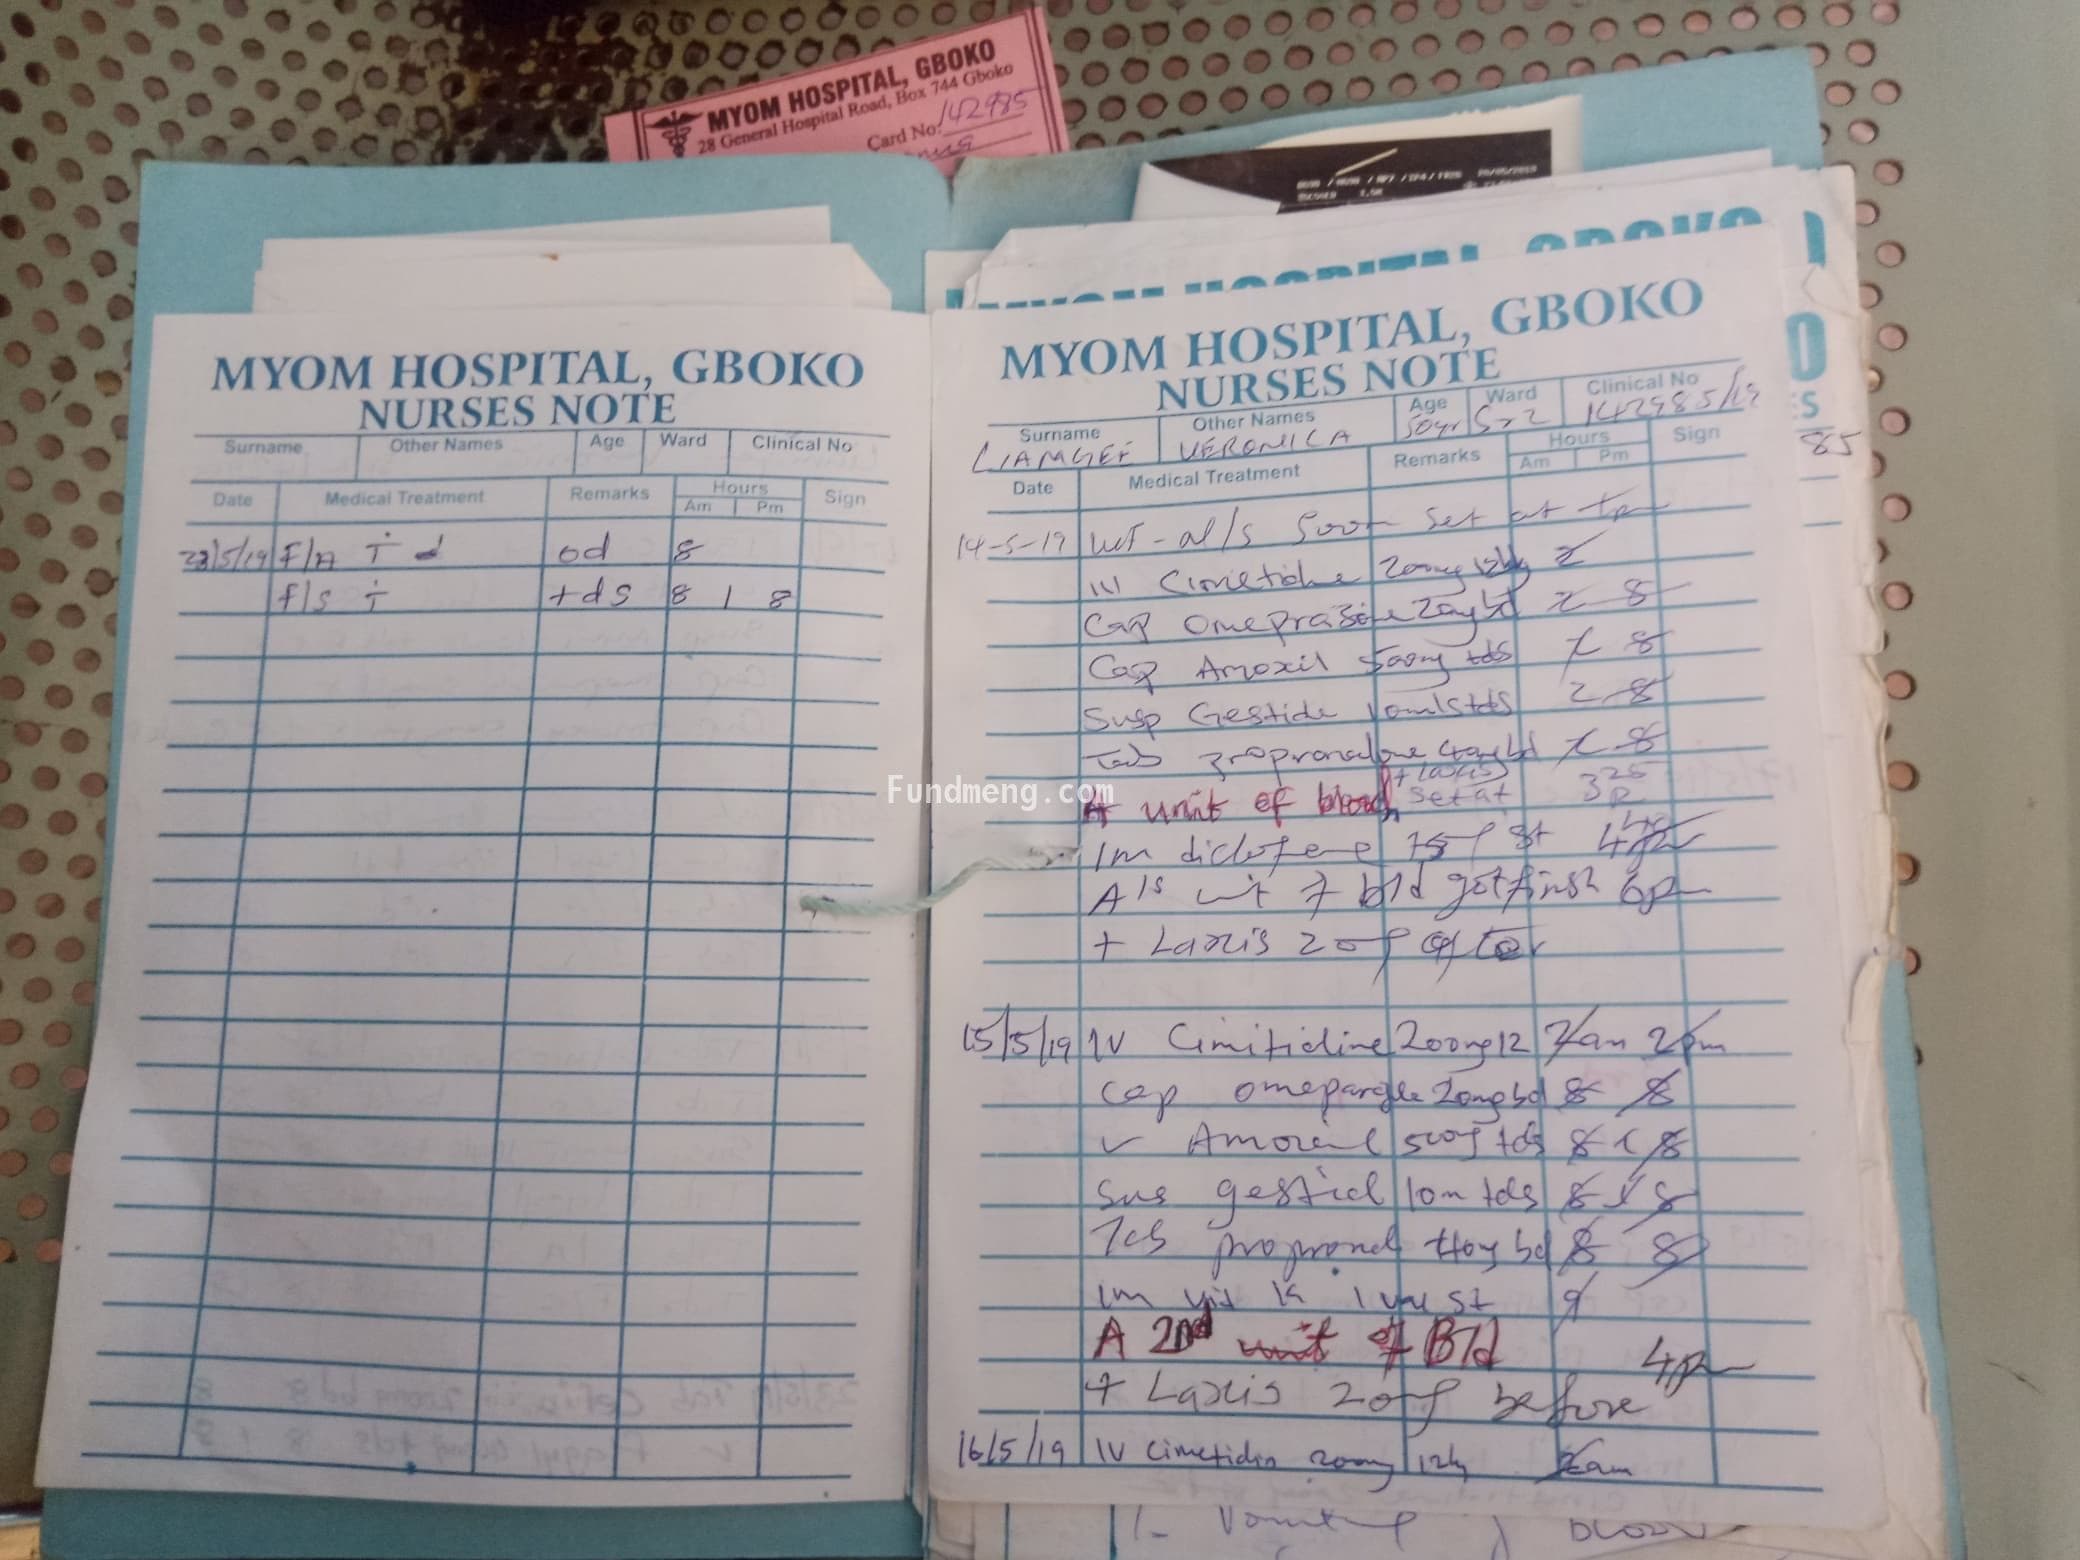 MYOM HOSPITAL, GBOKO
28 General Hospital Road, Box 744 Gboko
Card No: 142985
MYOM HOSPITAL, GBOKO
NURSES NOTE
Surname Other Names Age Ward Clinical No
Date Medical Treatment Remarks Hours Sign
Am Pm
23/5/19 F/A T od 8
F/S T tds 8 1 8
MYOM HOSPITAL, GBOKO
NURSES NOTE
Surname Other Names Age Ward Clinical No
VERONICA 50yr 142985/19
Date Medical Treatment Remarks Hours Sign
Am Pm
85
14-5-19 set at
Cimetidine 200mg 12hly 2
Cap Omeprazole 20mg bd 8
Cap Amoxil 500mg tds 8
Susp Gestide 10mls tds 2 8
Tab propranolone 40mg bd 8
A unit of blood + laxis set at 3 25 p
Fundmeng.com
Im diclofenac st
A 1s unit of bld got finish 6pm
+ Laxis 20mg after
15/5/19 IV Cimitidine 200mg 12 2am 2pm
Cap 20mg bd 8 8
500mg tds 8 8
Sus 10m tds 8 8
40mg bd 8 8
Im vit K 1 st 9
A 2nd unit of Bld 4pm
+ Laxis 20mg before
16/5/19 IV Cimetidin 200mg 12hly 2am
Vomiting blood